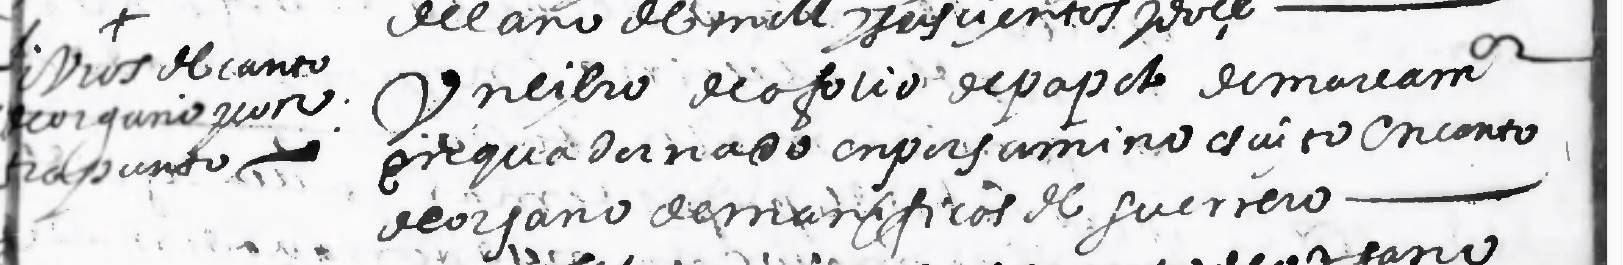 del año de mill y seiscientos y doçe
+
libros de canto
de organo y con
trapunto
Un libro de a folio de papel de marcam
enquadernado en pergamino escrito en canto
de organo de manificas de guerrero
de organo